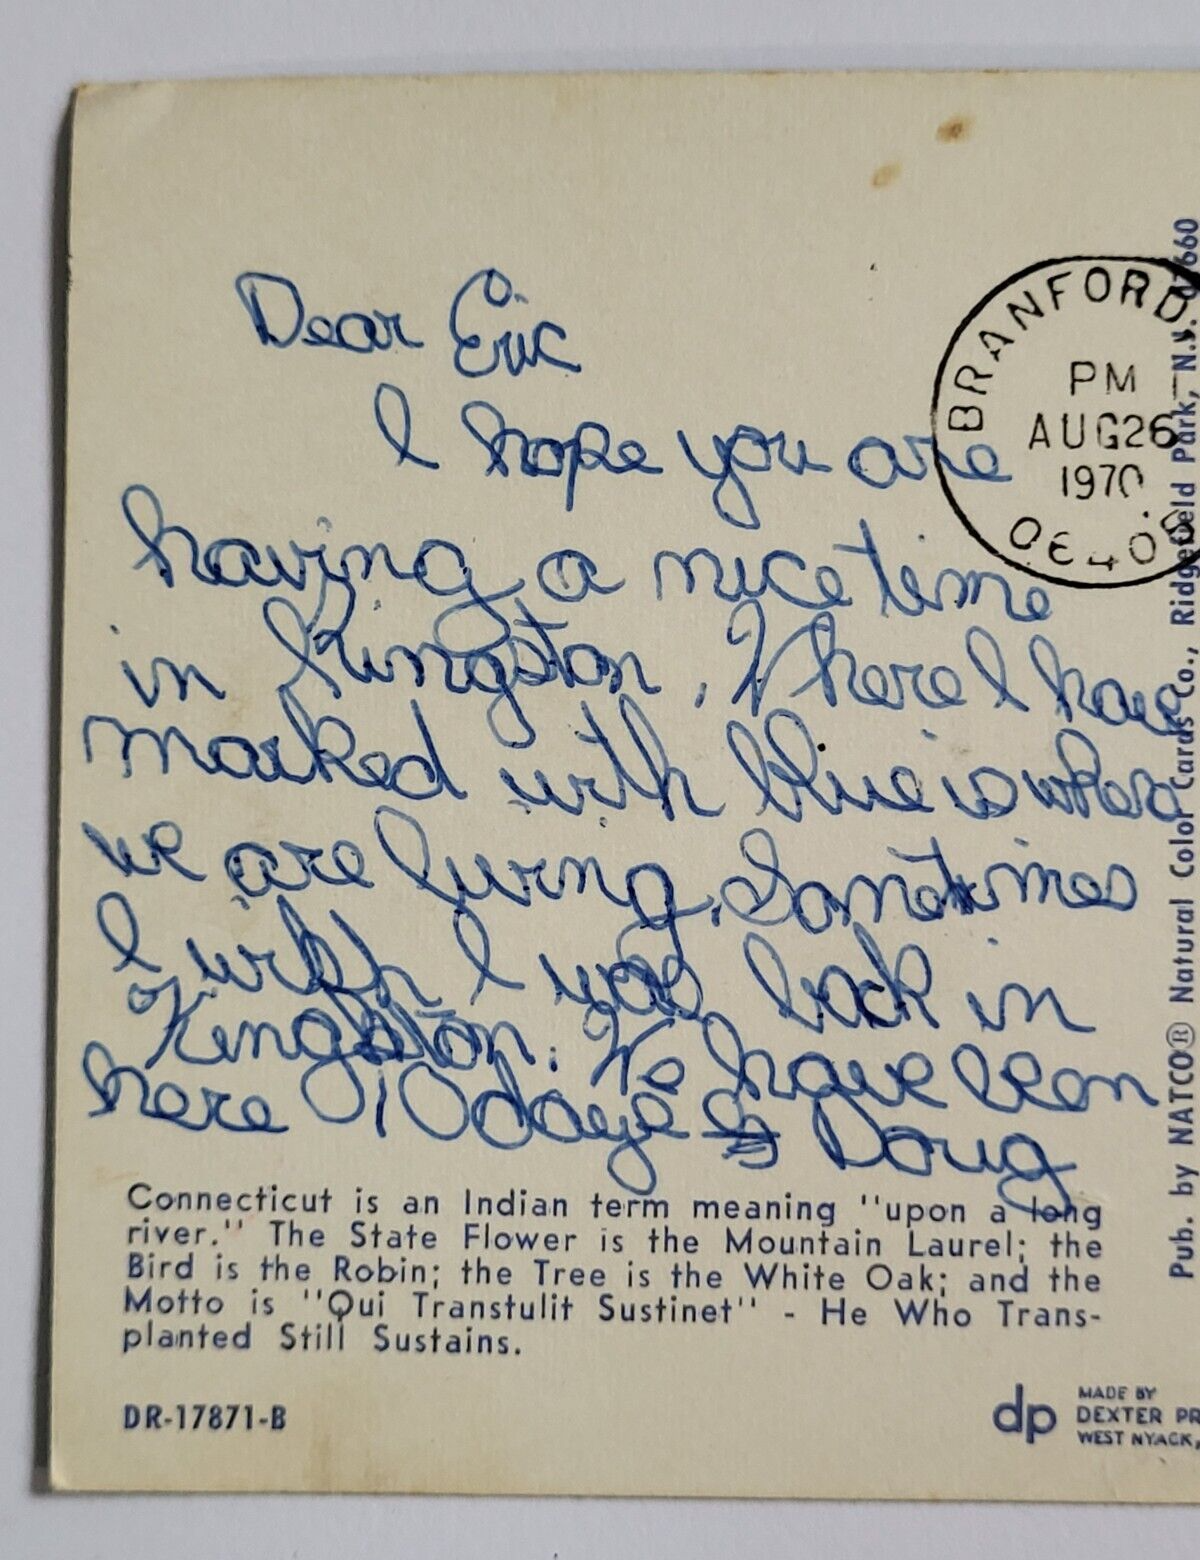 Dear Eric
I hope you are
having a nice time
in Kingston. Where I have
marked with blue is where
we are living. Sometimes
I wish I was back in
Kingston. We have been
here 10 days Doug
BRANFORD,
PM
AUG 26
1970
06405
Connecticut is an Indian term meaning "upon a long
river." The State Flower is the Mountain Laurel; the
Bird is the Robin; the Tree is the White Oak; and the
Motto is "Qui Transtulit Sustinet" - He Who Trans-
planted Still Sustains.
DR-17871-B
dp
MADE BY
DEXTER PR
WEST NYACK,
Pub. by NATCO® Natural Color Cards Co., Ridgefield Park, N.J. 07660